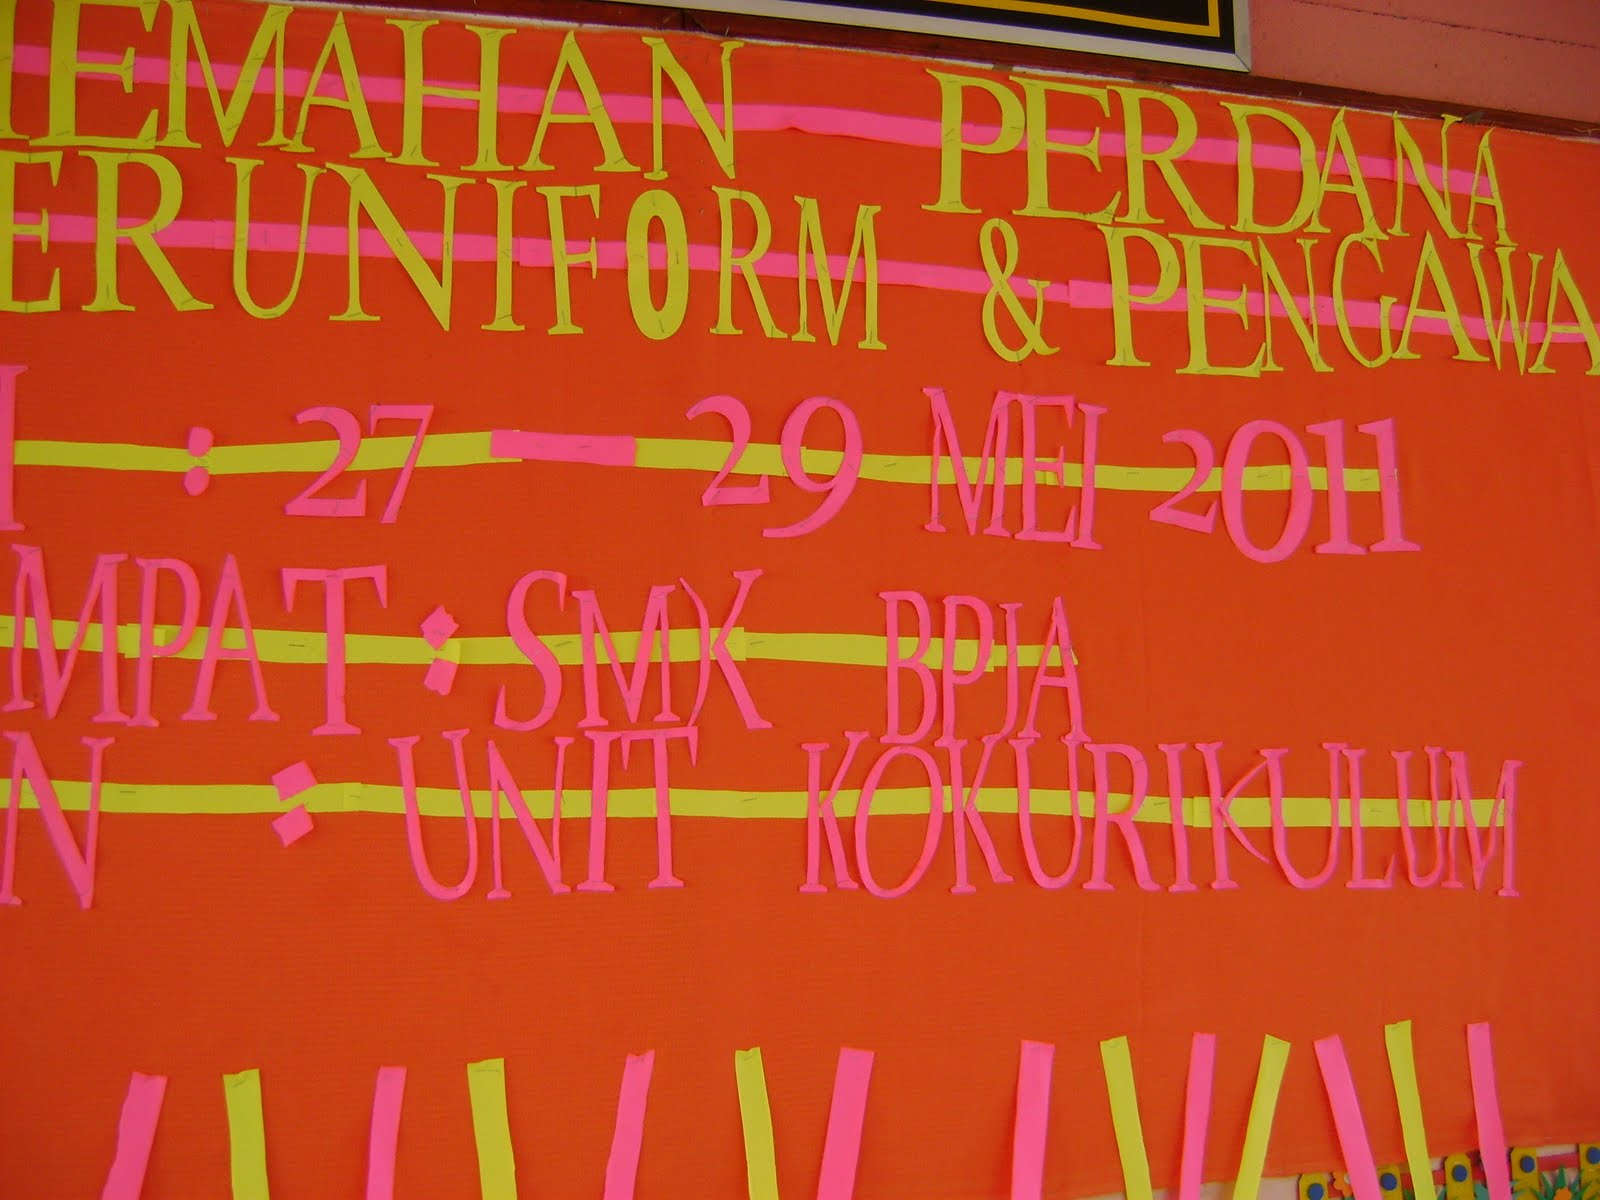 EMAHAN PERDANA
ERUNIFORM & PENGAWA
I : 27 — 29 MEI 2011
MPAT : SMK BPJA
N : UNIT KOKURIKULUM